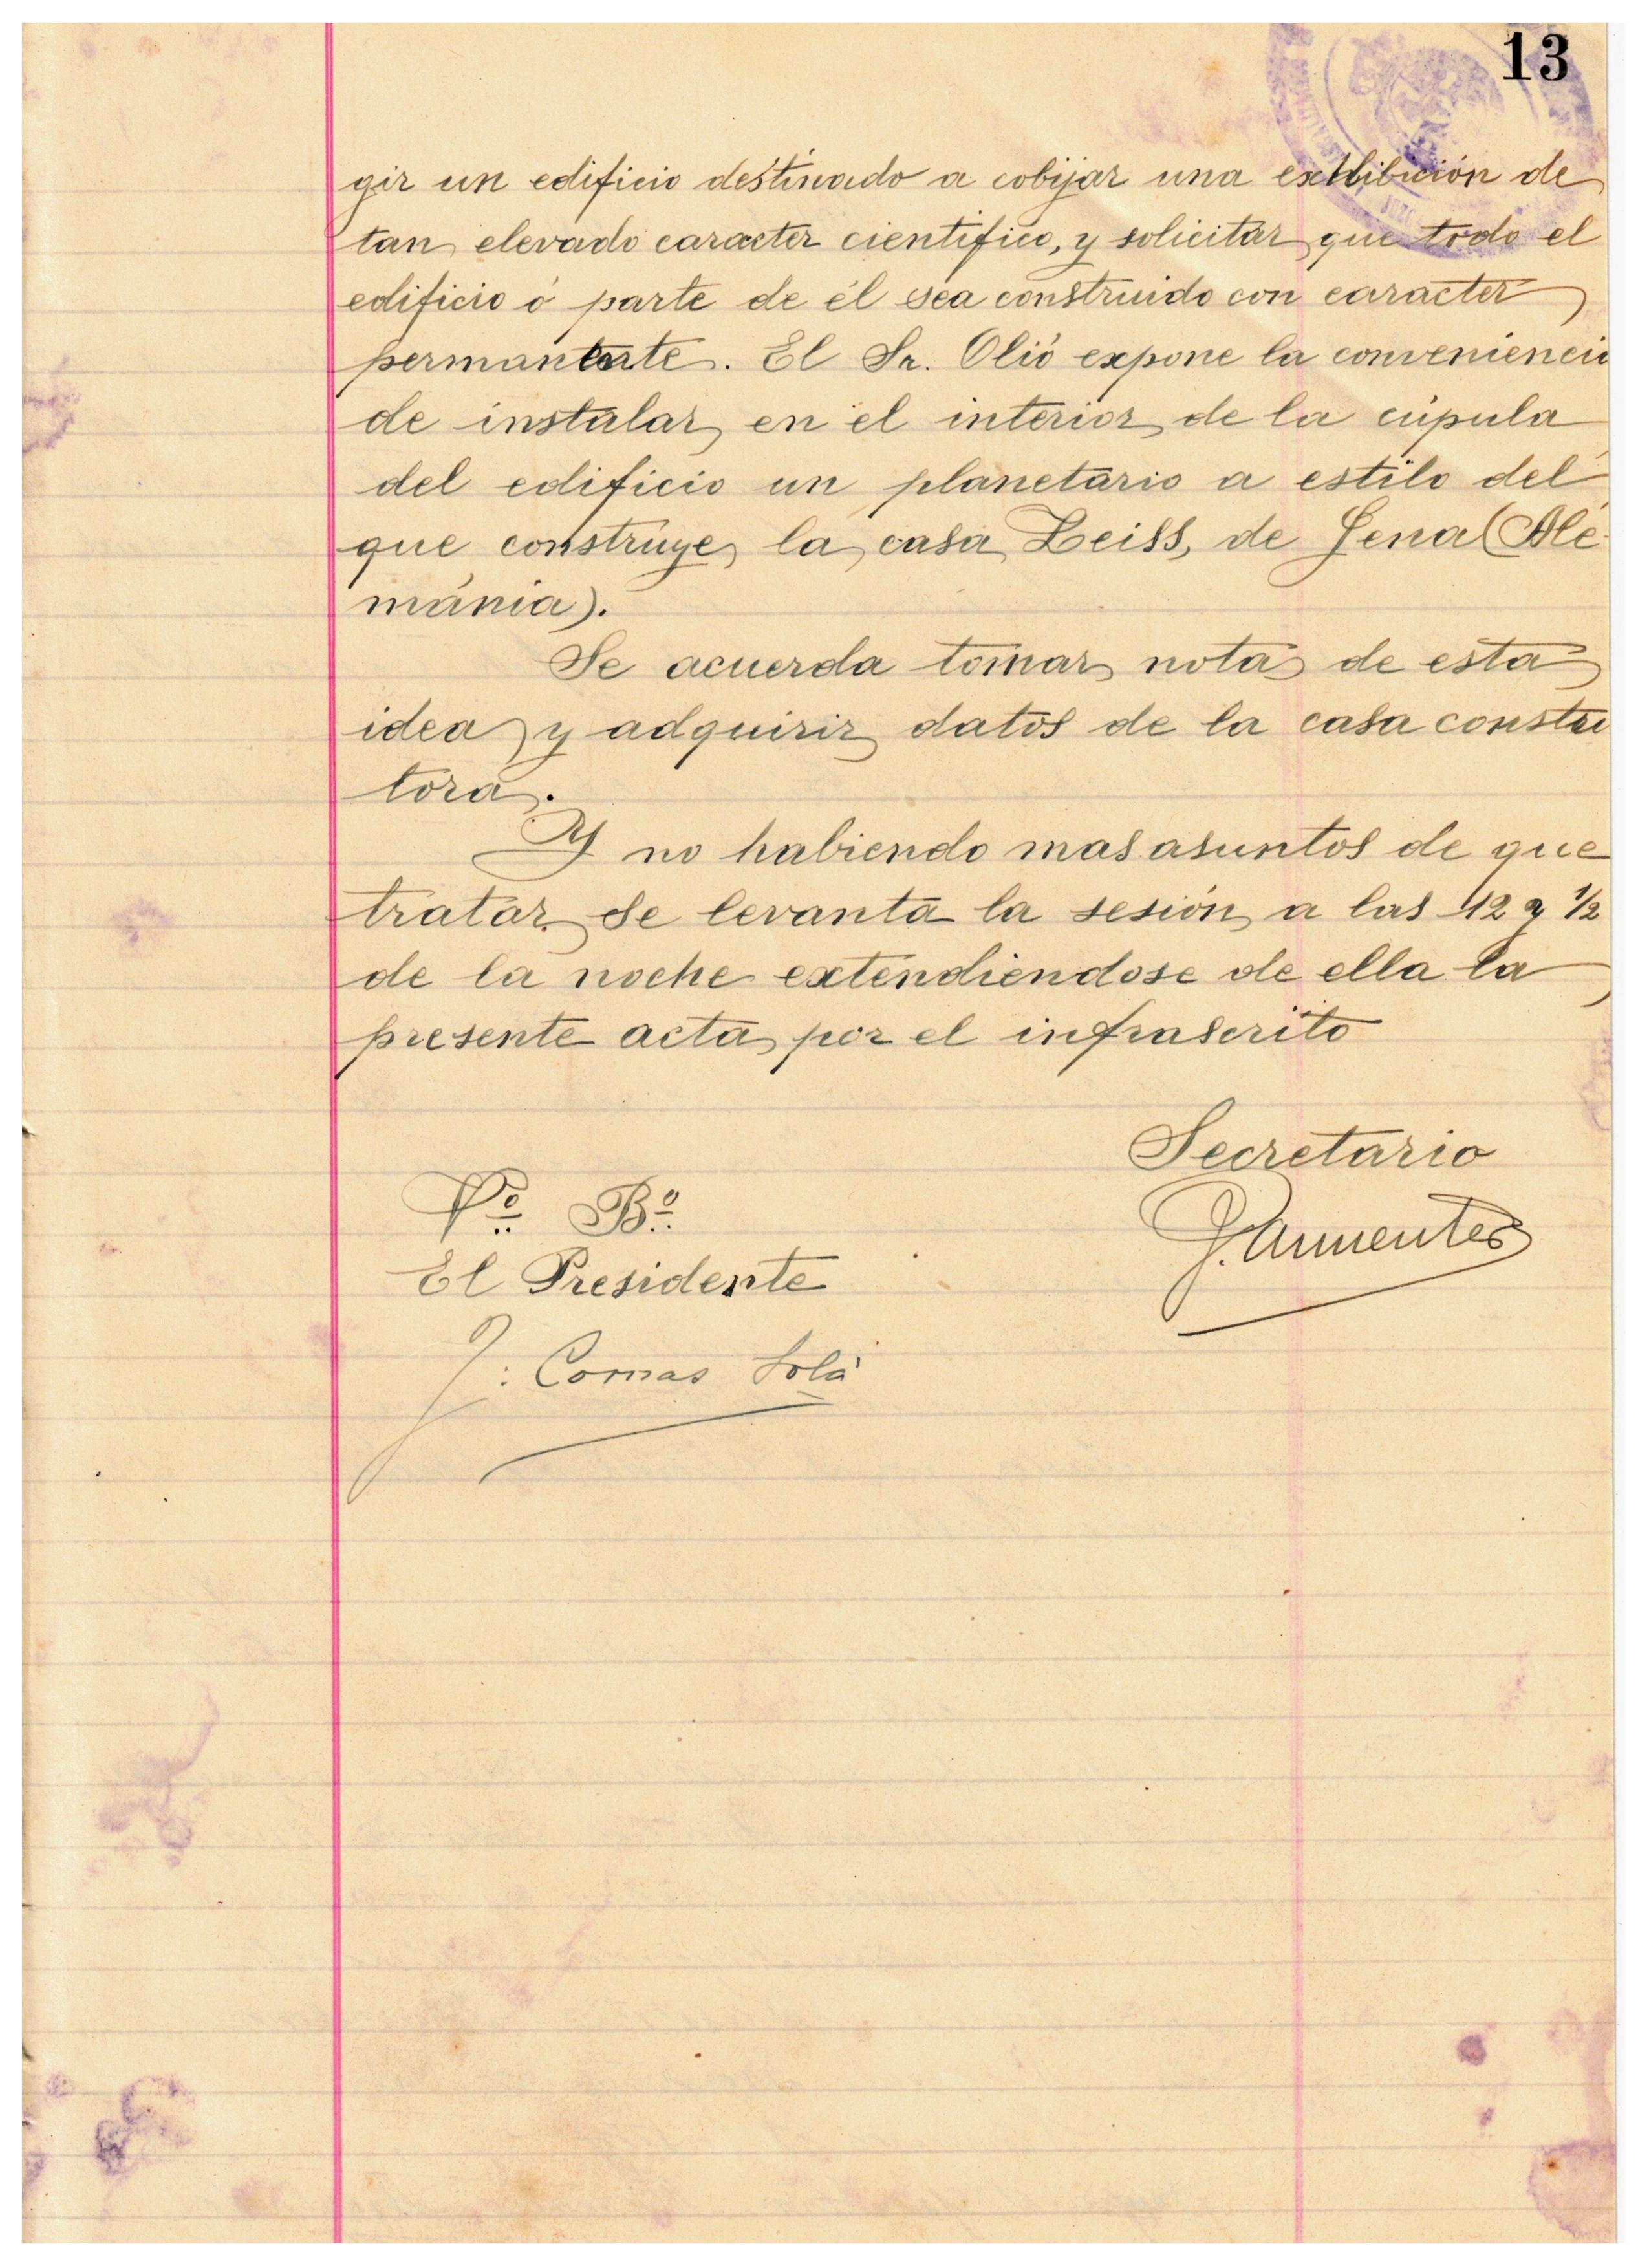 13
gir un edificio destinado a cobijar una exhibición de
tan elevado caracter cientifico, y solicitar que todo el
edificio ó parte de él sea construido con caracter
permantente. El Sr. Olió expone la convenienci
de instalar en el interior de la cúpula
del edificio un planetario a estilo del
que construye la casa Zeiss, de Jena (Ale-
mania).
Se acuerda tomar nota de esta
idea y adquirir datos de la casa constru
tora.
Y no habiendo mas asuntos de que
tratar se levanta la sesión a las 12 y ½
de la noche extendiendose de ella la
presente acta por el infrascrito
Secretario
Vº Bº
El Presidente
J. Comas Solá